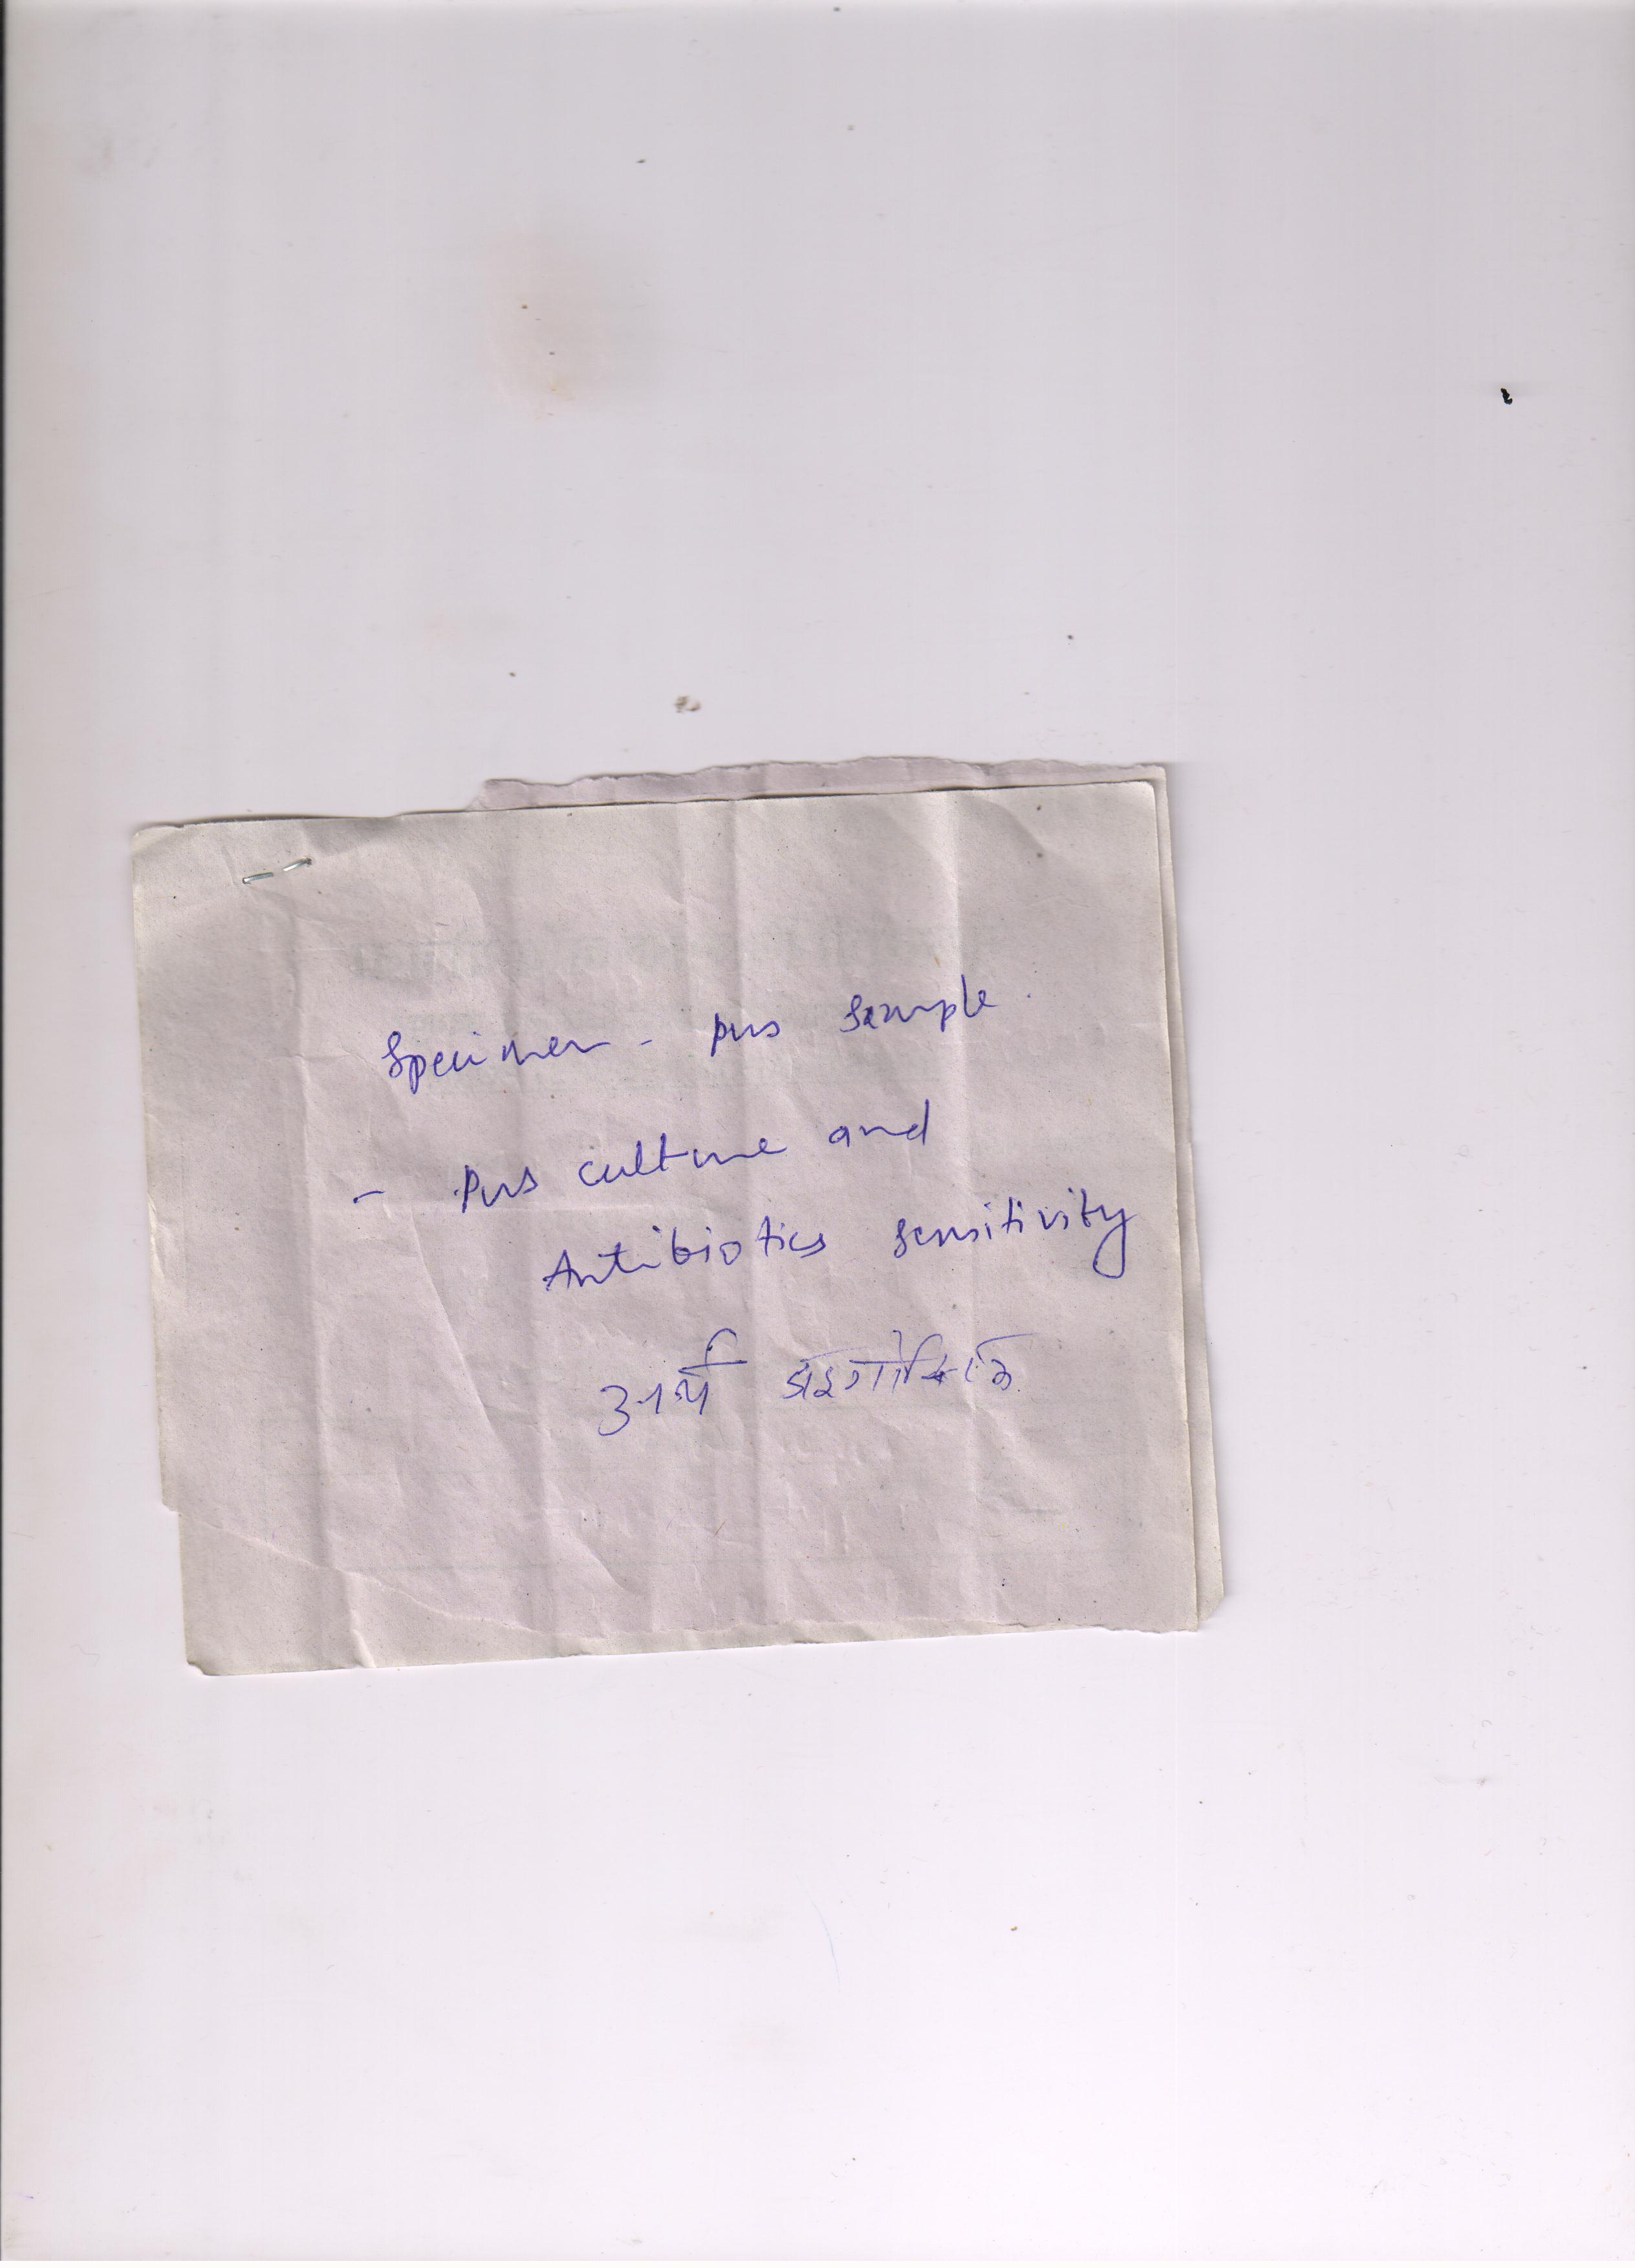 Specimen - Pus Sample.
- Pus culture and
Antibiotics sensitivity
आर्य डाइग्नोस्टिक